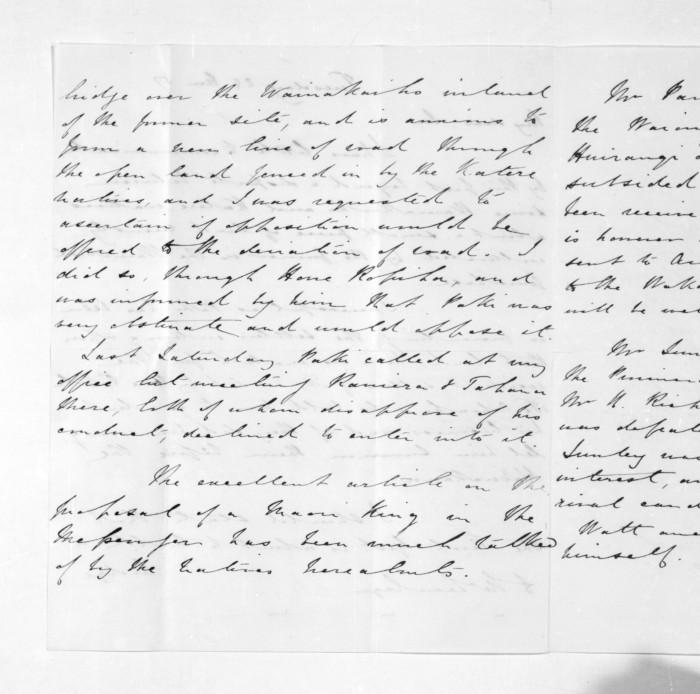 bridge over the Waiwakaiho inland
of the former site, and is anxious to
form a new line of road through
the open land fenced in by the Katere
natives, and I was requested to
ascertain if opposition would be
offered to the deviation of road. I
did so, through Hone Ropiha, and
was informed by him that Patu was
very obstinate and would oppose it.
Last Saturday Patu called at my
office but meeting Raniera & Tahana
there, both of whom disapprove of his
conduct, declined to enter into it.
The excellent article on the
proposal of a Maori King in the
Messenger has been much talked
of by the natives hereabouts.
Mr Par
the Wai
Huirangi
subsided
been receiv
is however
sent to
to the
will be
Mr
the
Mr H. Rich
was defeat
was
interest, an
rival cand
Watt and
himself.